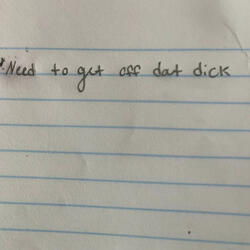 Need to get off dat dick